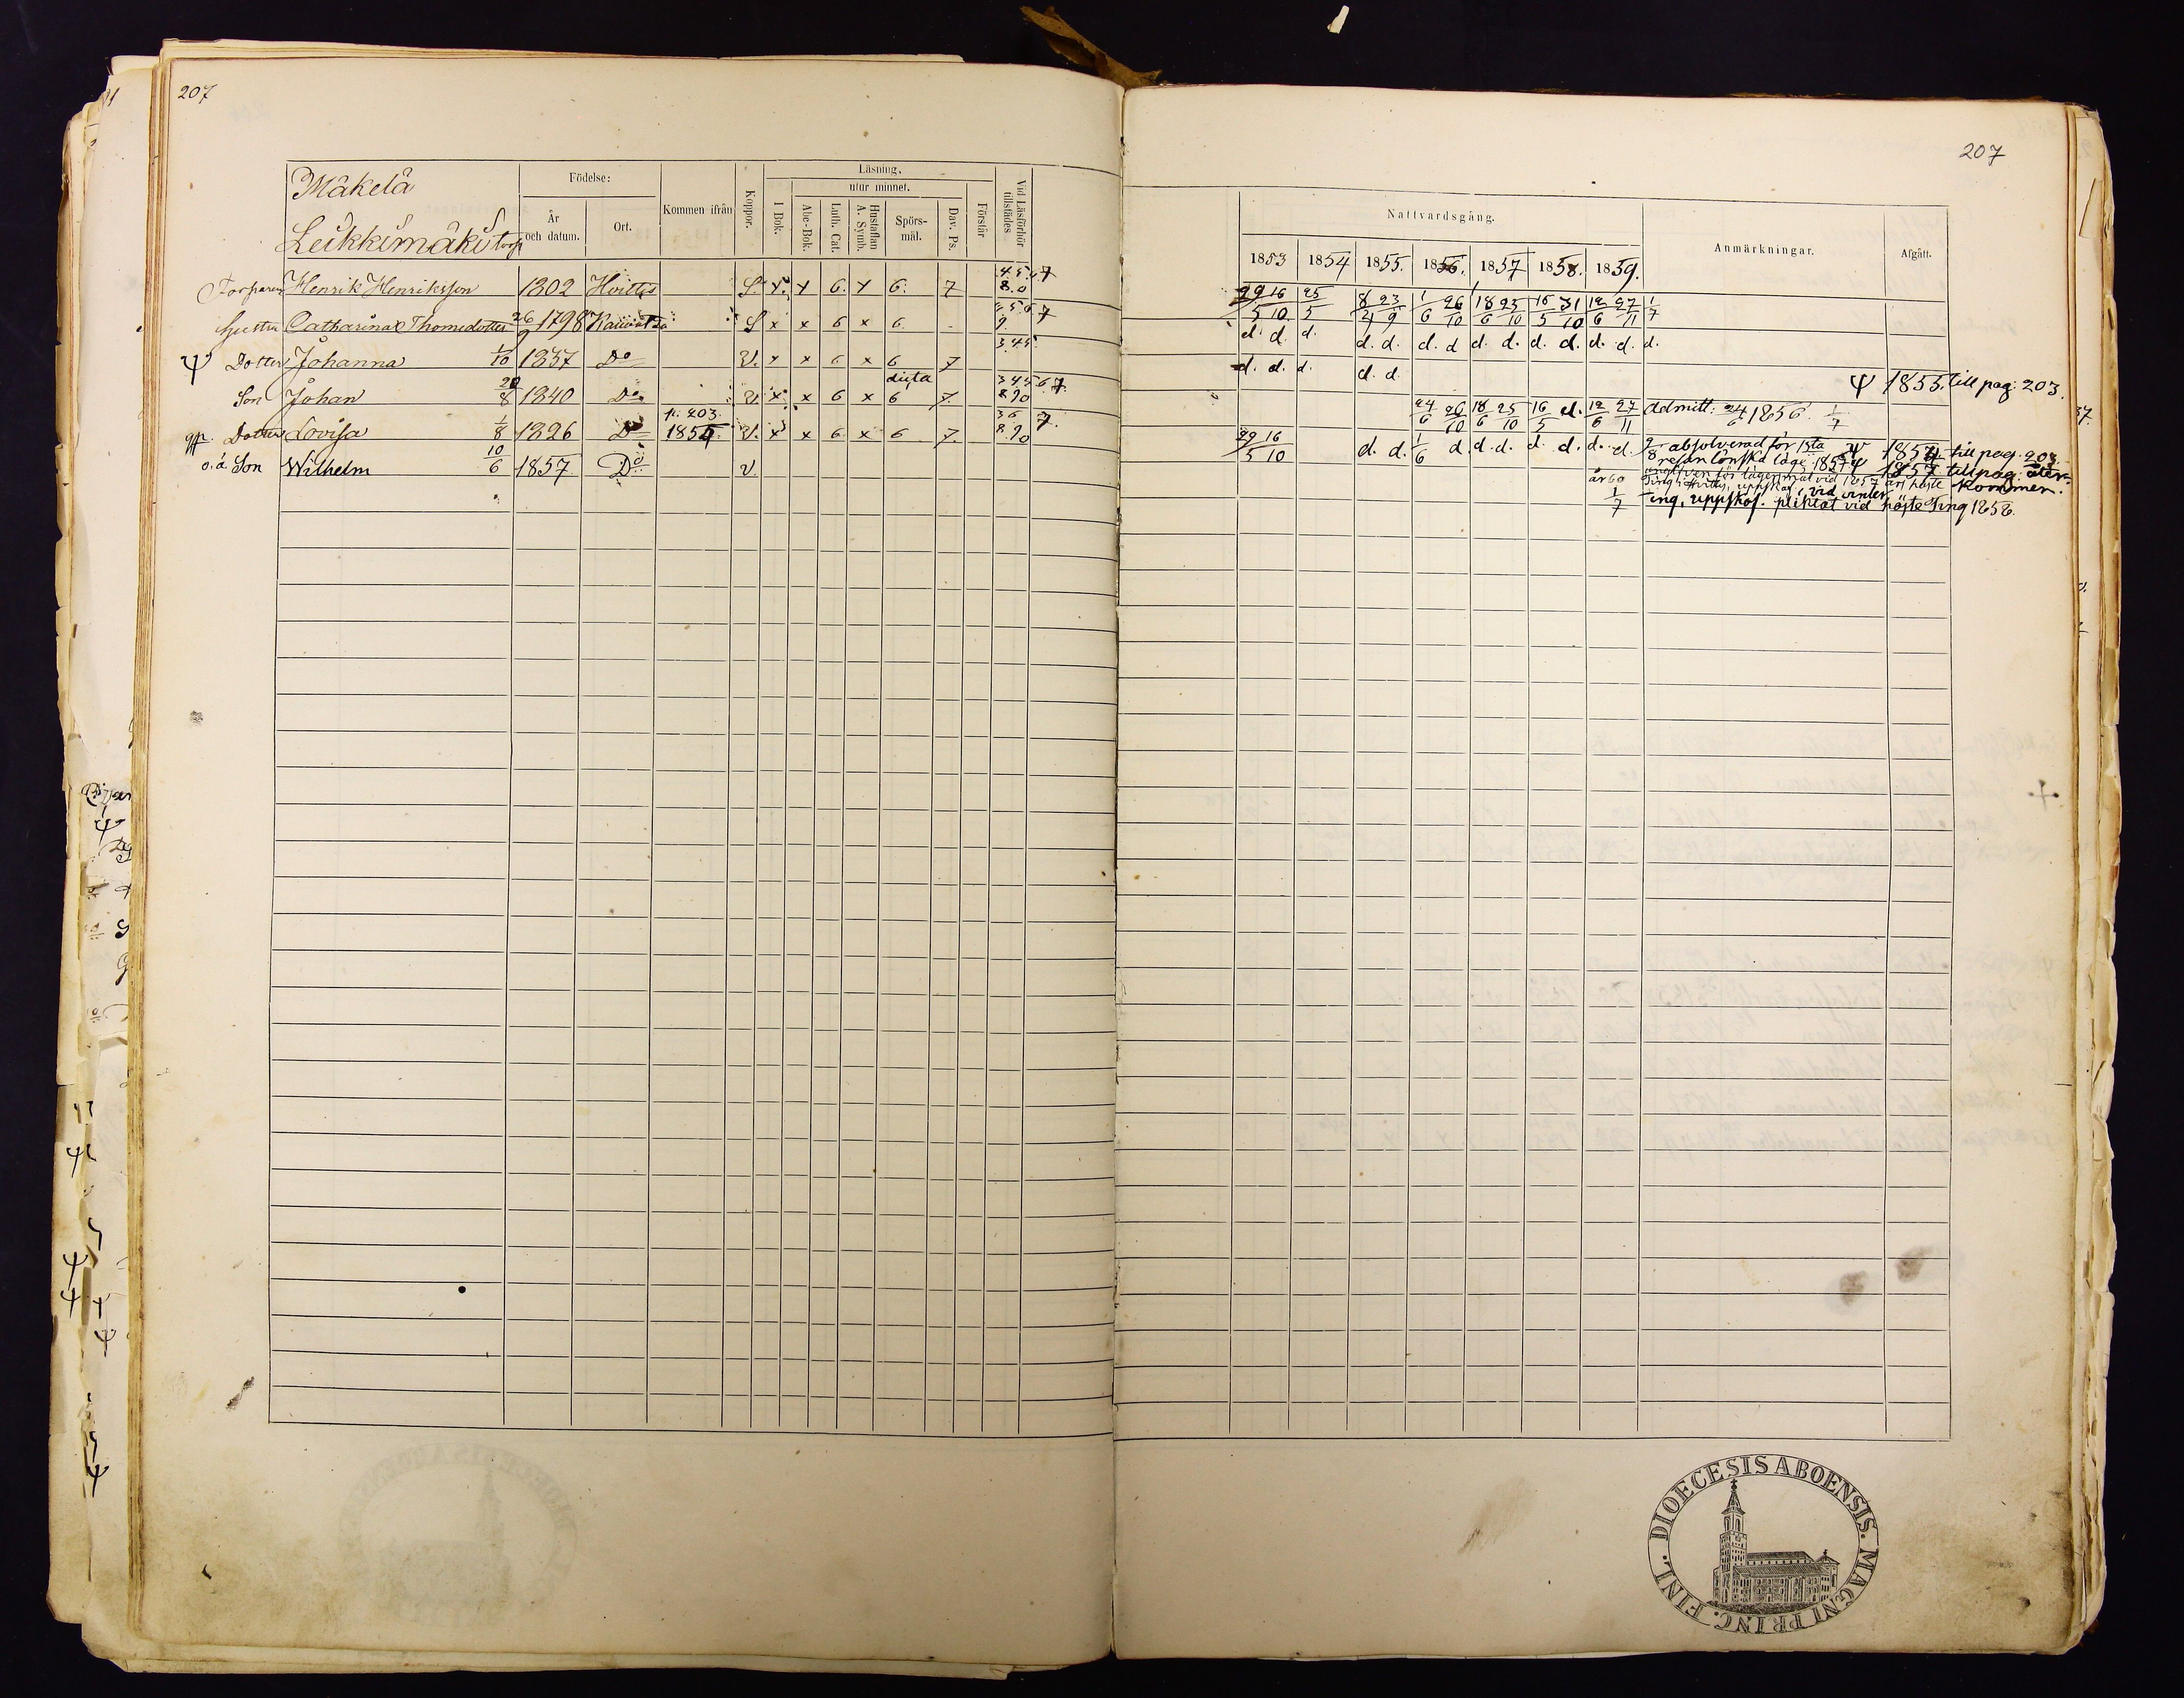 207
207
Mäkelä
Leikkimäki torp
Födelse:
År och datum.
Ort.
Kommen ifrån
Koppor.
Läsning,
I Bok.
utur minnet.
Abc-Bok.
Luth. Cat.
Hustaflan A. Symb.
Spörs-mål.
Dav. Ps.
Förstår
Vid Läsförhör tillstädes
Nattvardsgång.
1853 1854 1855. 1856. 1857 1858. 1859.
Anmärkningar.
Afgått.
Torparen Henrik Henriksson 1802 Hvittis S. x. x 6. x 6. 7 4.5.6 7 8.0
29/5 16/10 25/5 8/4 23/9 1/6 26/10 18/6 25/10 16/5 31/10 12/6 27/11 1/7
Hustru Catharina Thomedotter 26/9 1798 S x x 6 x 6. 5.6 7
d. d. d. d. d. d. d d. d. d. d. d. d. d.
Ψ Dotter Johanna 1/10 1837 Do V. x x 6 x 6 7 3.4.5
d. d. d. d. d Ψ 1855. till pag: 203.
Son Johan 29/8 1840 Do V. x x 6 x dicta 6 7. 3 4 5 6 7. 8.90
24/6 26/10 18/6 25/10 16/5 d. 12/6 27/11 Admitt: 24/6 1856. 1/7
Dotter Lovisa 1/8 1826 Do p. 203. 1854. V. x x 6 x 6 7. 3 6 7. 8.90
29/5 16/10 d. d. 1/6 d d. d. d. d. d. d. 2/8 absolverad för 1sta 1854 till pag. 203.
resan lönska läge 1857 Ψ 1857 till pag. åter-
o.ä Son Wilhelm 10/6 1857 Do V.
år 60 kommen.
1/7 ting, uppskof. pliktat vid höste Ting 1858.
DIOECESIS ABOENSIS. MAGNI PRINC. FINL.